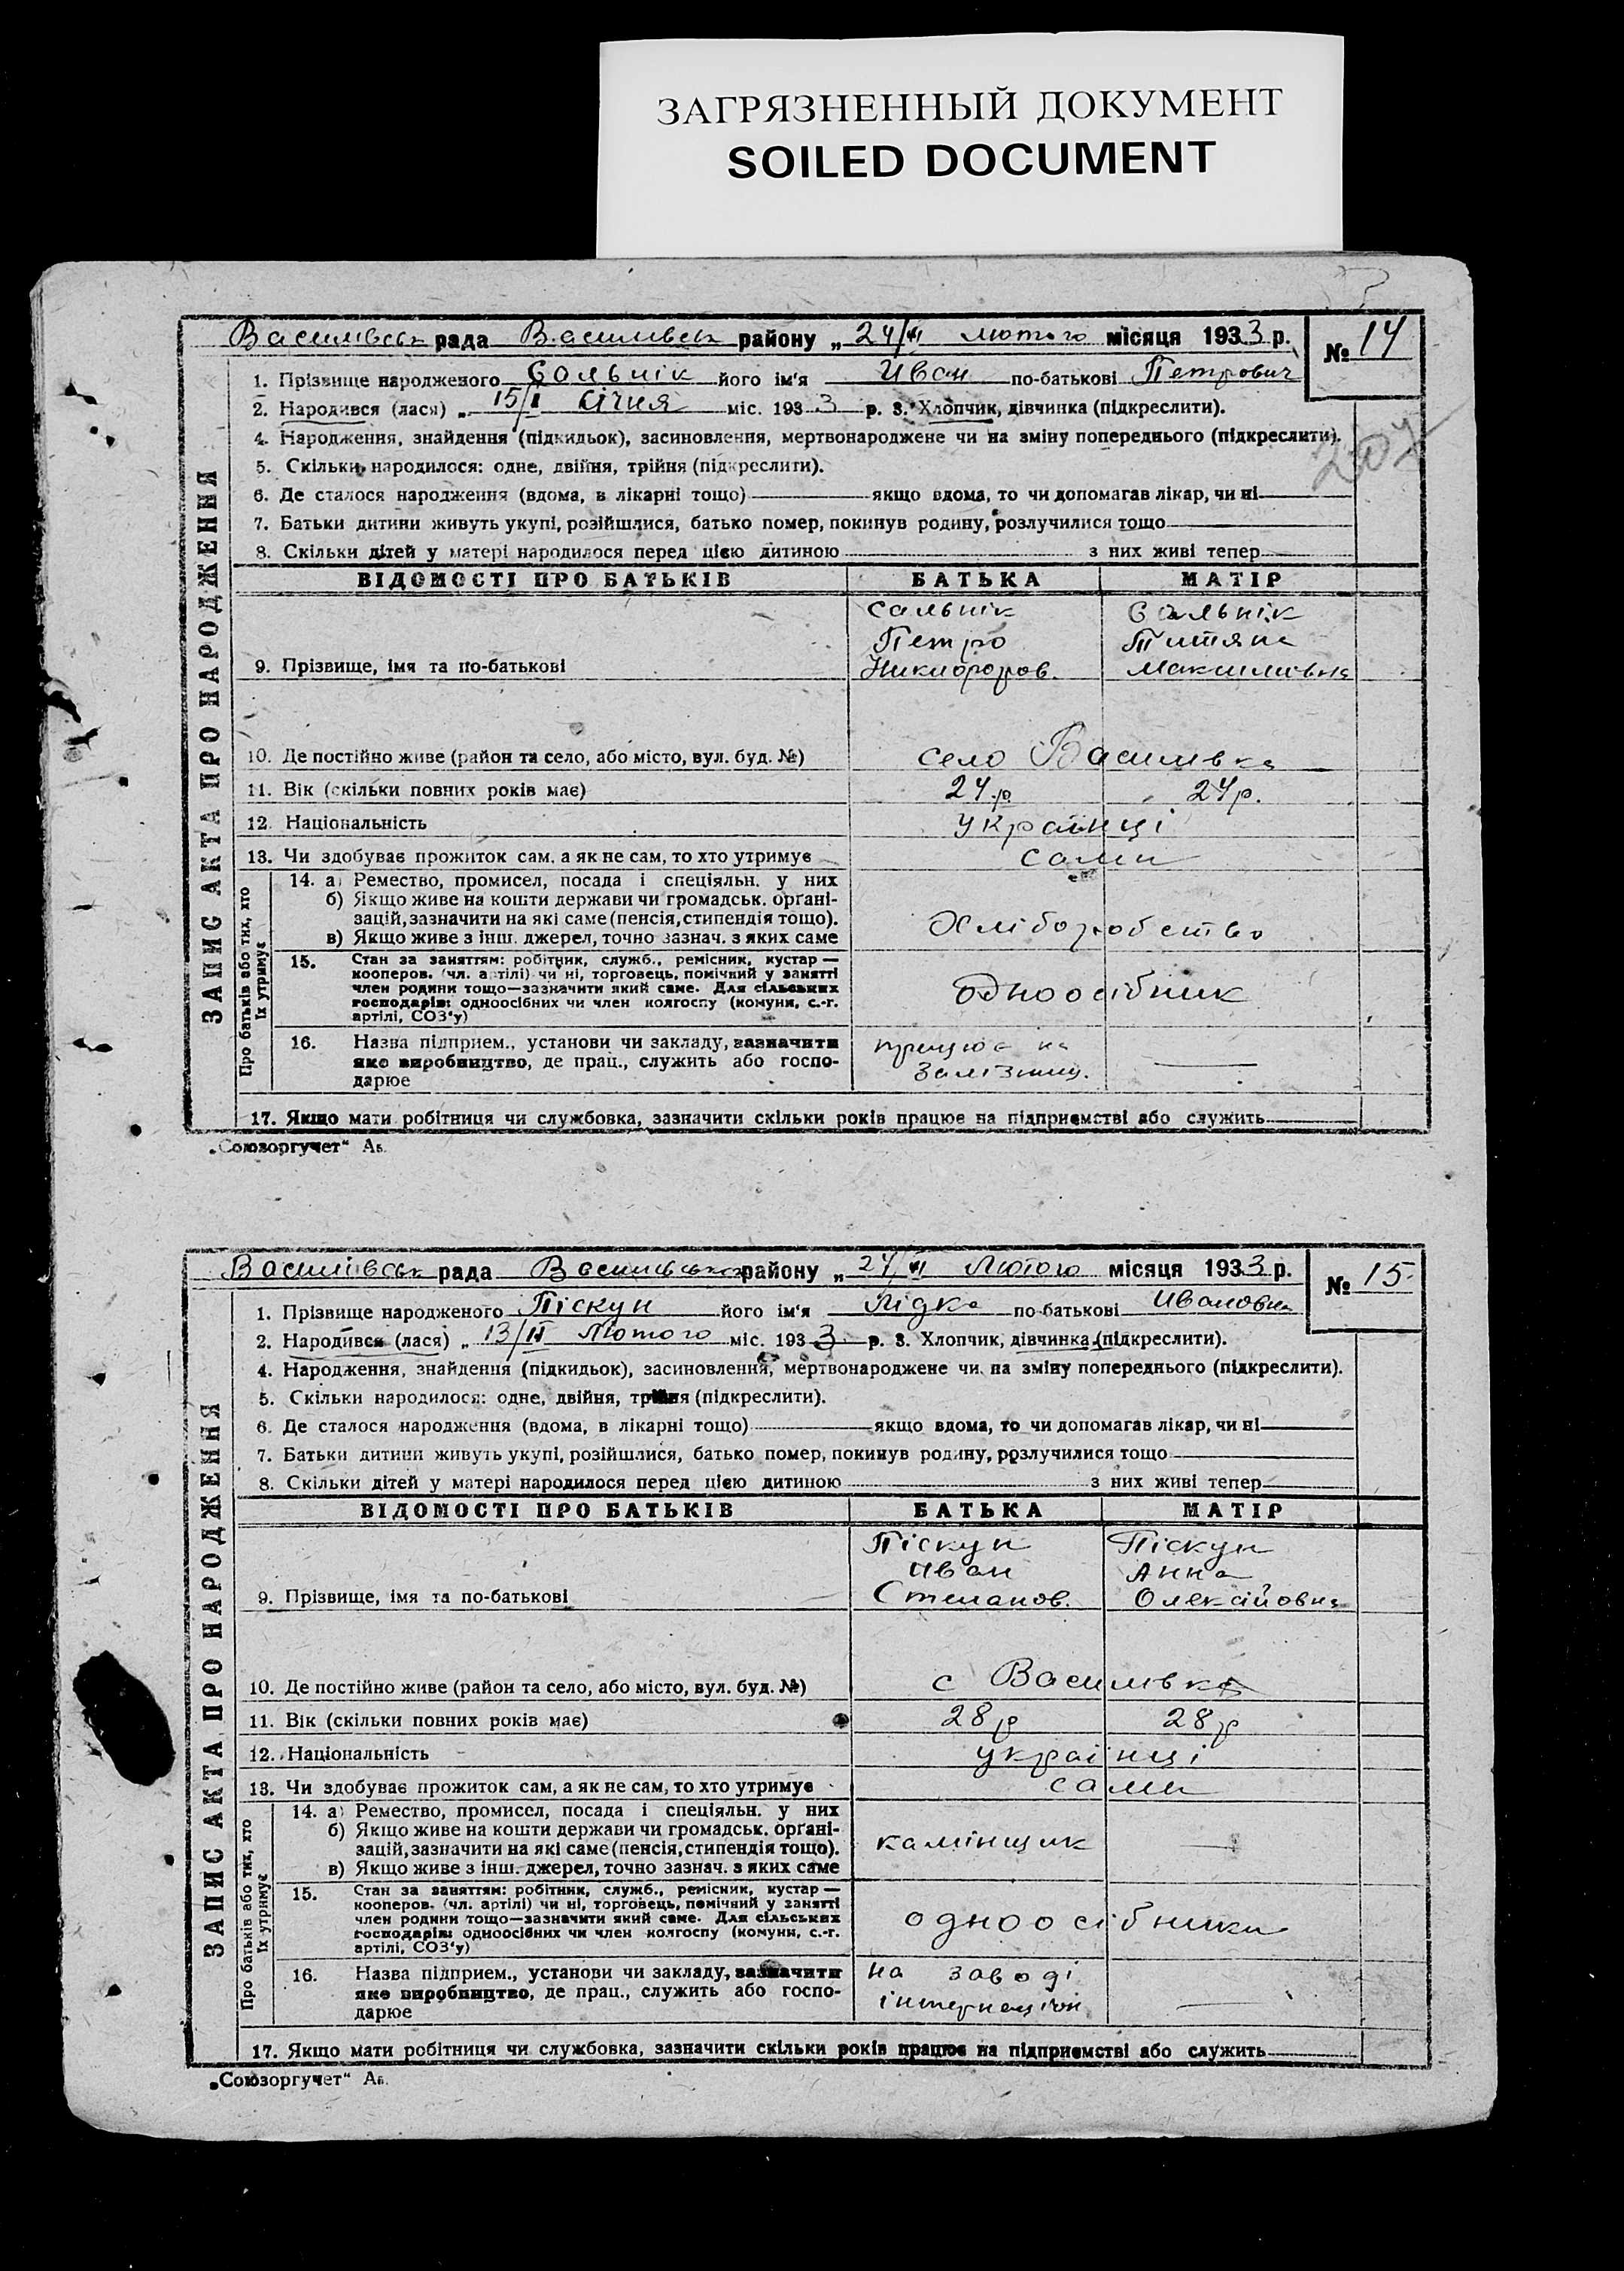 ЗАГРЯЗНЕННЫЙ ДОКУМЕНТ
SOILED DOCUMENT
Василівськ рада Василивськ району „ 24/II лютого місяця 1933 р. № 14
1. Прізвище народженого Сольнік його ім'я Иван по-батькові Петрович
2. Народився (лася) „ 15/I січня міс. 1933 р. 3. Хлопчик, дівчинка (підкреслити).
4. Народження, знайдення (підкидьок), засиновлення, мертвонароджене чи на зміну попереднього (підкреслити).
207
5. Скільки народилося: одне, двійня, трійня (підкреслити).
6. Де сталося народження (вдома, в лікарні тощо) якщо вдома, то чи допомагав лікар, чи ні
7. Батьки дитини живуть укупі, розійшлися, батько помер, покинув родину, розлучилися тощо
8. Скільки дітей у матері народилося перед цією дитиною з них живі тепер
ЗАПИС АКТА ПРО НАРОДЖЕННЯ
ВІДОМОСТІ ПРО БАТЬКІВ БАТЬКА МАТІР
Сальнік Сальнік
Петро Титяна
9. Прізвище, імя та по-батькові Никиоров. Максимивна
10. Де постійно живе (район та село, або місто, вул. буд. №) село Василивка
11. Вік (скільки повних років має) 24 р 24 р.
12. Національність українці
13. Чи здобуває прожиток сам, а як не сам, то хто утримує сами
Про батьків або тих, хто їх утримує
14. а) Ремество, промисел, посада і спеціяльн. у них
б) Якщо живе на кошти держави чи громадськ. орґані-
зацій, зазначити на які саме (пенсія, стипендія тощо). Хліборобство
в) Якщо живе з інш. джерел, точно зазнач. з яких саме
15. Стан за заняттям: робітник, служб., ремісник, кустар —
кооперов. (чл. артілі) чи ні, торговець, помічний у занятті
член родини тощо—зазначити який саме. Для сільських
господарів: одноосібних чи член колгоспу (комуни, с.-г. одноосібник
артілі, СОЗ'у)
16. Назва підприєм., установи чи закладу, зазначити працює на
яке виробництво, де прац., служить або госпо- Залізниц.
дарює
17. Якщо мати робітниця чи службовка, зазначити скільки років працює на підприємстві або служить
„Союзоргучет“ Ав.
Василівськ рада Василивського району „ 24/II Лютого місяця 1933 р. № 15
1. Прізвище народженого Піскун його ім'я Лідка по-батькові Ивановна
2. Народився (лася) „ 13/II Лютого міс. 1933 р. 3. Хлопчик, дівчинка (підкреслити).
4. Народження, знайдення (підкидьок), засиновлення, мертвонароджене чи на зміну попереднього (підкреслити).
5. Скільки народилося: одне, двійня, трійня (підкреслити).
6. Де сталося народження (вдома, в лікарні тощо) якщо вдома, то чи допомагав лікар, чи ні
7. Батьки дитини живуть укупі, розійшлися, батько помер, покинув родину, розлучилися тощо
8. Скільки дітей у матері народилося перед цією дитиною з них живі тепер
ЗАПИС АКТА ПРО НАРОДЖЕННЯ
ВІДОМОСТІ ПРО БАТЬКІВ БАТЬКА МАТІР
Піскун Піскун
Иван Анна
9. Прізвище, імя та по-батькові Степанов. Олексійовна
10. Де постійно живе (район та село, або місто, вул. буд. №) с Василивка
11. Вік (скільки повних років має) 28 р 28 р
12. Національність українці
13. Чи здобуває прожиток сам, а як не сам, то хто утримує сами
Про батьків або тих, хто їх утримує
14. а) Ремество, промисел, посада і спеціяльн. у них
б) Якщо живе на кошти держави чи громадськ. орґані-
зацій, зазначити на які саме (пенсія, стипендія тощо). камінщик
в) Якщо живе з інш. джерел, точно зазнач. з яких саме
15. Стан за заняттям: робітник, служб., ремісник, кустар —
кооперов. (чл. артілі) чи ні, торговець, помічний у занятті
член родини тощо—зазначити який саме. Для сільських
господарів: одноосібних чи член колгоспу (комуни, с.-г. одноосібники
артілі, СОЗ'у)
16. Назва підприєм., установи чи закладу, зазначити на заводі
яке виробництво, де прац., служить або госпо- інтернаціон
дарює
17. Якщо мати робітниця чи службовка, зазначити скільки років працює на підприємстві або служить
„Союзоргучет“ Ав.